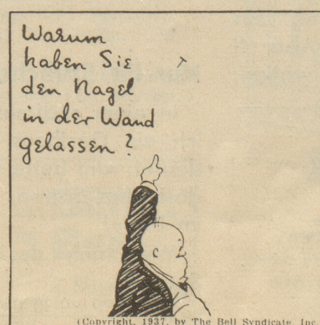 Warum
haben Sie
den Nagel
in der Wand
gelassen?
(Copyright, 1937, by The Bell Syndicate, Inc